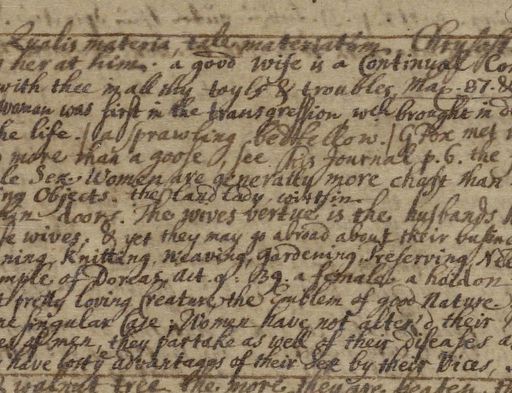 Qualis materia, tale materiatum. Chrysost
her at him. a good wife is a Continual Com
with thee in all thy toyls & troubles, Map. 87.
woman was first in the transgression, wch brought in d
he life. / a prawling bedfellow. / G Fox met w
more than a goose, see his Journal p. 6. the
le Sex. Women are generally more chast than
ng Objects. the Land Lady, within
han doors. The wives vertue is the husbands h
fe wives, & yet they may go abroad about their busine
ning, Knitting, weaving, gardening, preserving, Nee
mple of Dorcas, act. 9. 39. a female. a hoidon
t pretty loving Creature, the Emblem of good Nature
ne singular Case. Women have not alter'd their
es of men, they partake as well of their diseases a
have lost ye advantages of their Sex by their Vices,
walnut tree the more they are beaten, th